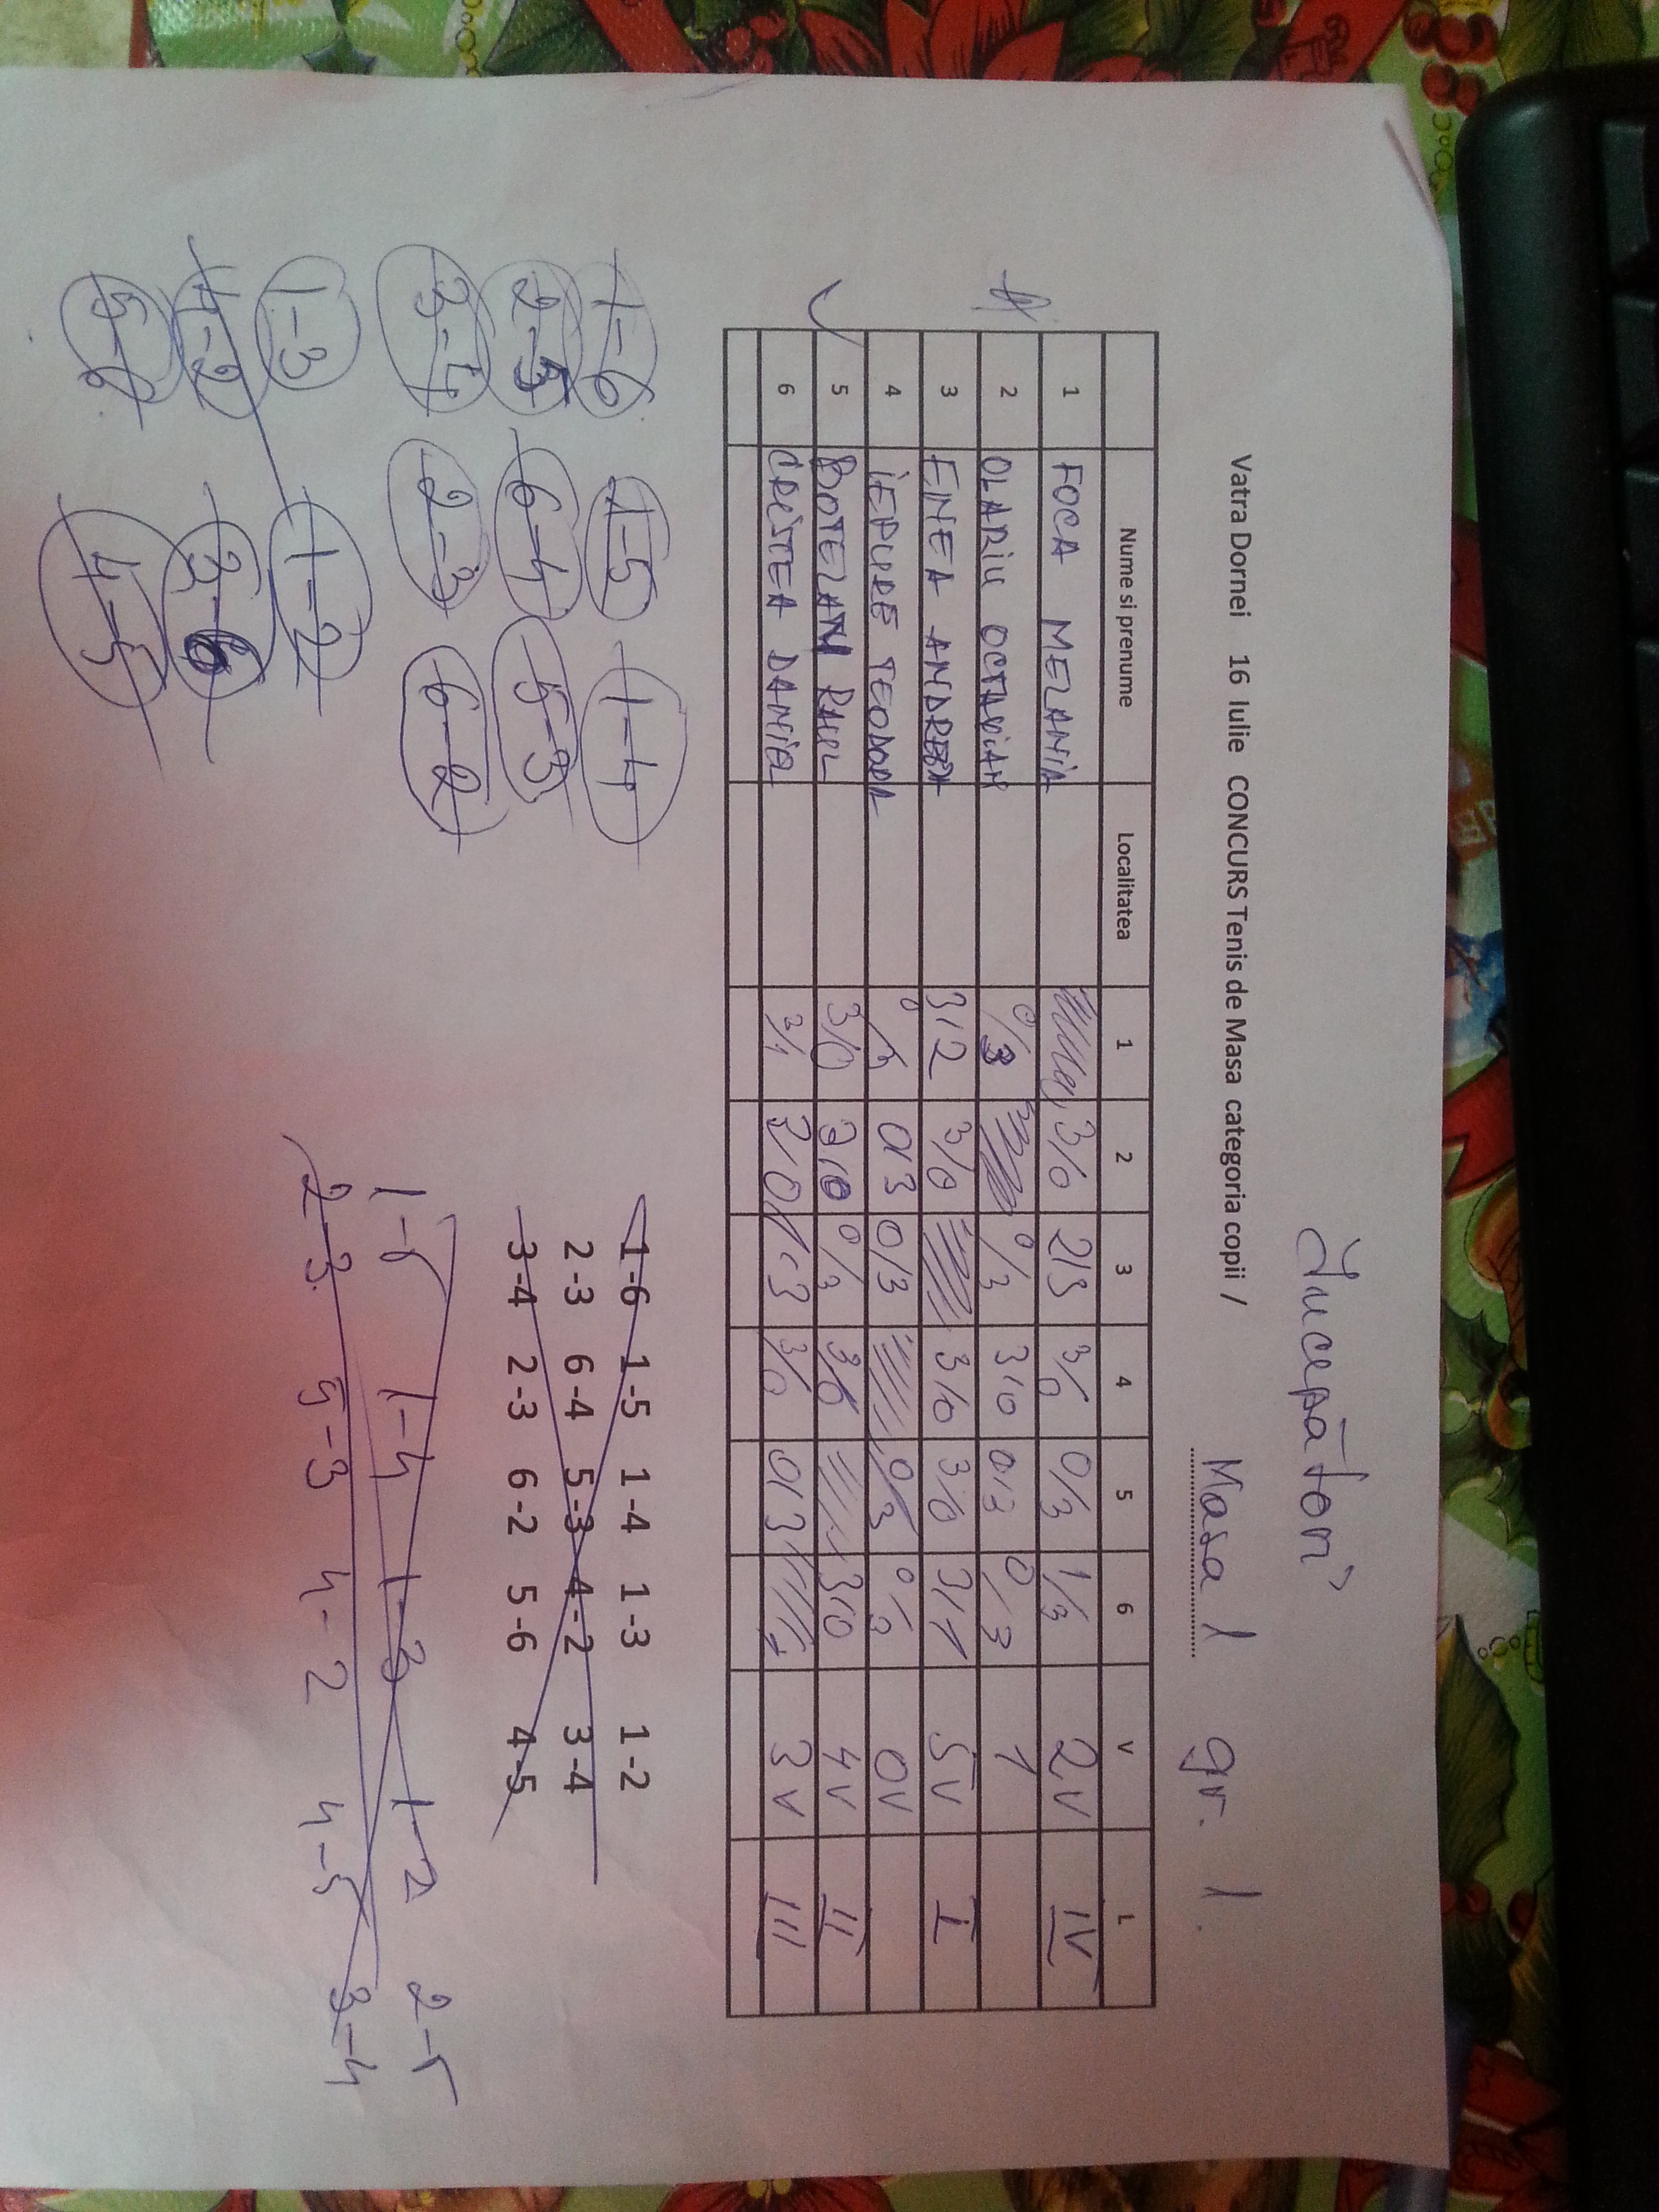 Începători
Vatra Dornei 16 Iulie CONCURS Tenis de Masa categoria copii / Masa 1 gr. 1.
Nume si prenume Localitatea 1 2 3 4 5 6 V L
1 FOCA MELANIA 3/0 2/3 3/0 0/3 1/3 2V IV
2 OLARIU OCTAVIAN 0/3 0/3 3/0 0/3 0/3 1
3 ENEA ANDREEA 3/2 3/0 3/0 3/0 3/1 5V I
4 IEPURE TEODORA 0/3 0/3 0/3 0/3 0/3 0V
5 BOTEZAN RAUL 3/0 3/0 0/3 3/0 3/0 4V II
6 CRISTEA DANIEL 3/1 3/0 1/3 3/0 0/3 3V III
1-6 1-5 1-4 1-3 1-2
2-3 6-4 5-3 4-2 3-4
3-4 2-3 6-2 5-6 4-5
1-6 1-5 1-4
2-5 6-4 5-3
3-4 2-3 6-2
1-3 1-2
4-2 3-6
5-6 4-5
1-5 1-4 1-3 1-2 2-5
2-3 5-3 4-2 4-5 3-4